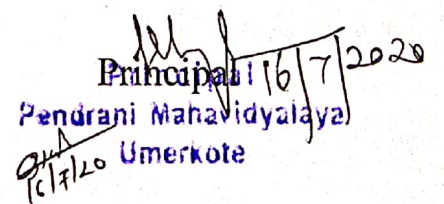 Principal 16/7/2020
Pendrani Mahavidyalaya
Umerkote
16/7/20